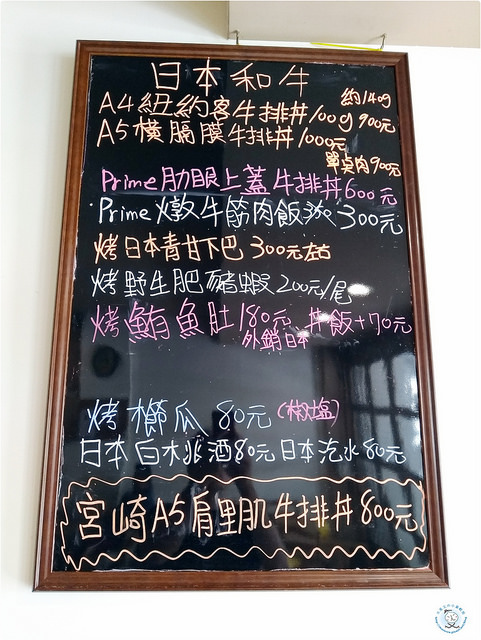 日本和牛
A4紐約客牛排丼100g 900元
約140g
A5橫膈膜牛排丼1000元
單桌肉900元
Prime肋眼上蓋牛排丼600元
Prime燉牛筋肉飯 300元
烤日本青甘下巴 300元左右
烤野生肥豬蝦 200元/尾
烤鮪魚肚 180元 丼飯+70元
外銷日本
烤櫛瓜 80元 (椒塩)
日本白桃酒80元 日本汽水80元
宮崎A5肩里肌牛排丼800元